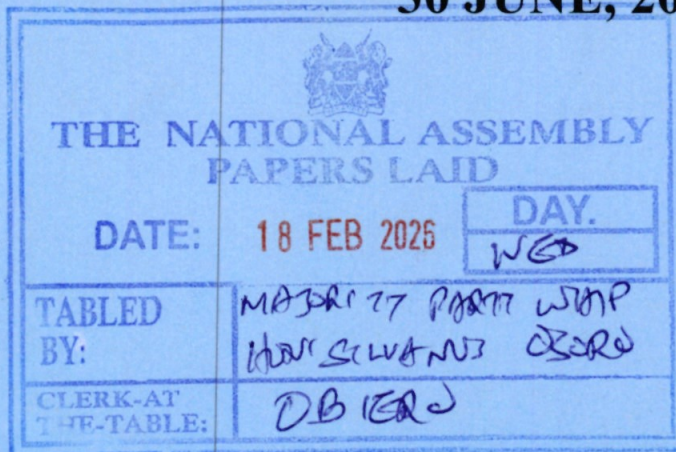 30 JUNE, 20
THE NATIONAL ASSEMBLY
PAPERS LAID
DATE: 18 FEB 2026
DAY.
WED
TABLED BY: MAJORITY PARTY WHIP
HON SILVANUS OSORO
CLERK-AT THE-TABLE: OBIERO